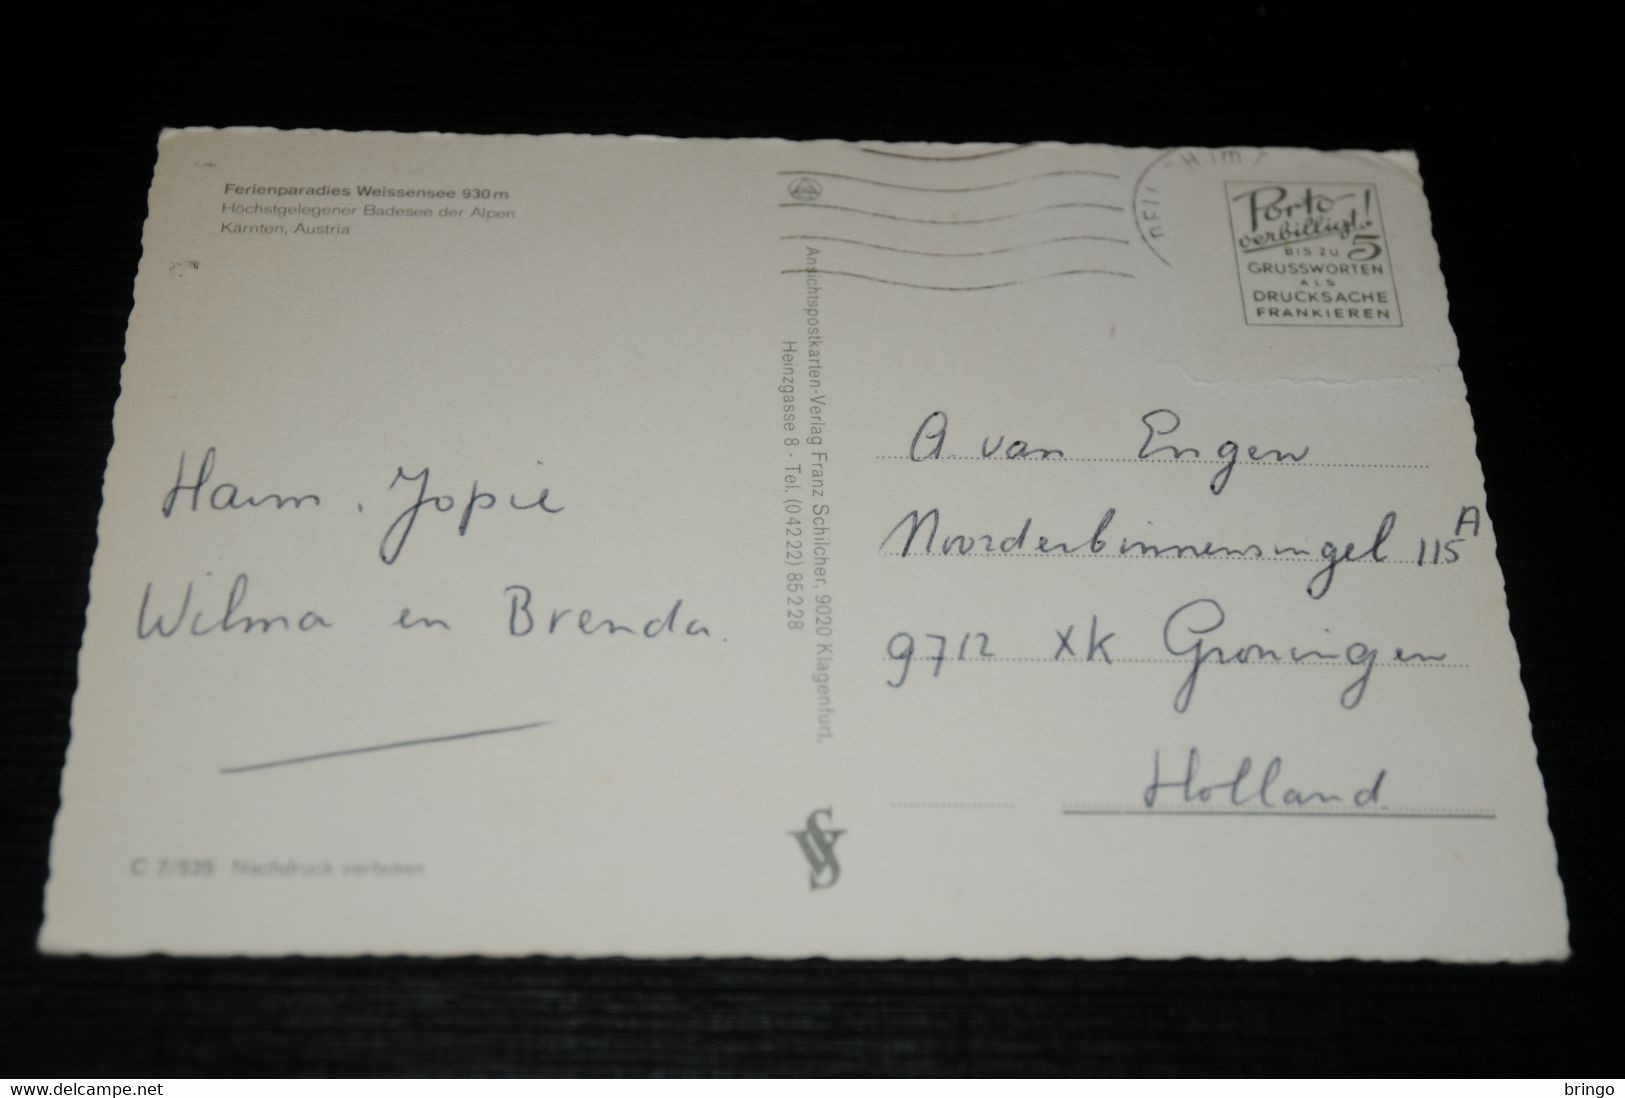 Ferienparadies Weissensee 930 m
Höchstgelegener Badesee der Alpen
Kärnten, Austria
Harm, Jopie
Wilma en Brenda.
C 7/525 Nachdruck verboten
Ansichtspostkarten-Verlag Franz Schilcher, 9020 Klagenfurt,
Heinzgasse 8 - Tel. (04222) 85228
Porto
verbilligt!
BIS ZU 5
GRUSSWORTEN
ALS
DRUCKSACHE
FRANKIEREN
A. van Engen
Noorderbinnensingel 115 A
9712 XK Groningen
Holland
delcampe.net
bringo